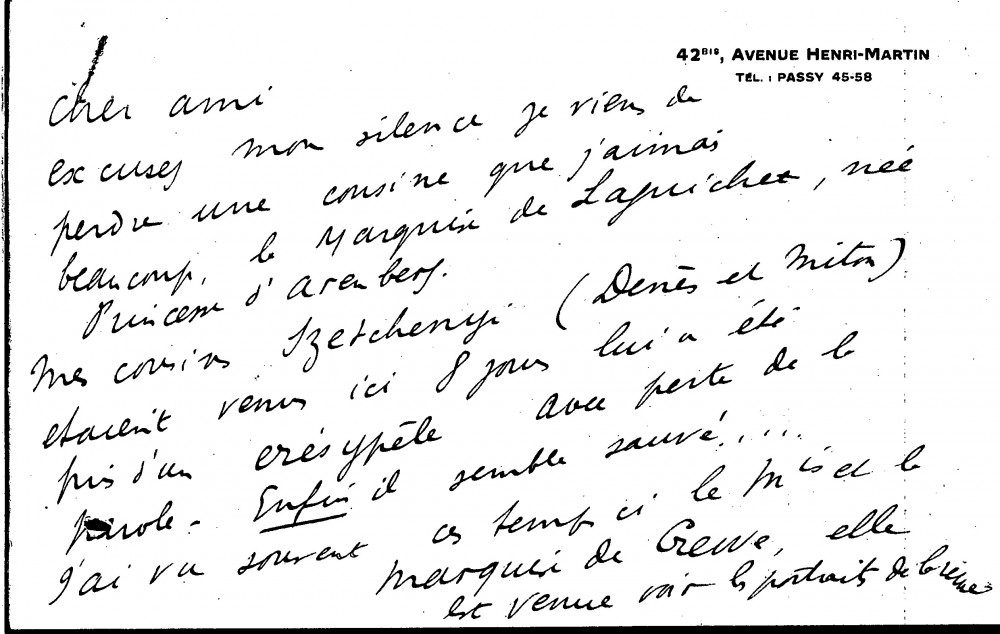 42BIS, AVENUE HENRI-MARTIN
TÉL. : PASSY 45-58
Cher ami
excusez mon silence je viens de
perdre une cousine que j'aimais
beaucoup, la Marquise de Laguichet, née
Princesse d'Arenberg.
Mes cousins Szetchenyi (Denès et Miton)
etaient venus ici 8 jours lui a été
pris d'un erésypèle avec perte de la
parole - Enfin il semble sauvé.....
J'ai vu souvent ces temps ci le Mis et la
marquise de Crewe, elle
est venue voir les portraits de la reine